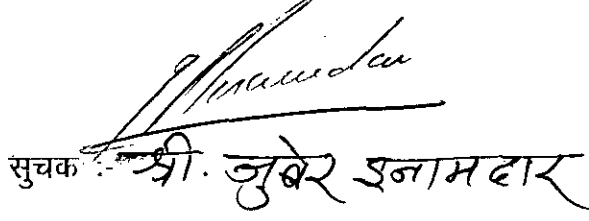 सुचक :- श्री. जुबेर इनामदार